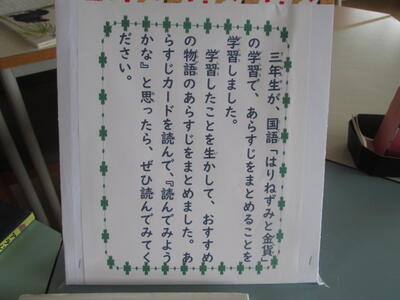 三年生が、国語「はりねずみと金貨」
の学習で、あらすじをまとめることを
学習しました。
学習したことを生かして、おすすめ
の物語のあらすじをまとめました。あ
らすじカードを読んで、『読んでみよう
かな』と思ったら、ぜひ読んでみてく
ださい。